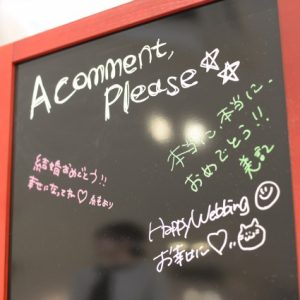 A comment,
Please ☆☆
本当に本当に
おめでとう!!
美記
結婚おめでとう!!
幸せになってね♡ より
Happy Webbing
お幸せに♡‥